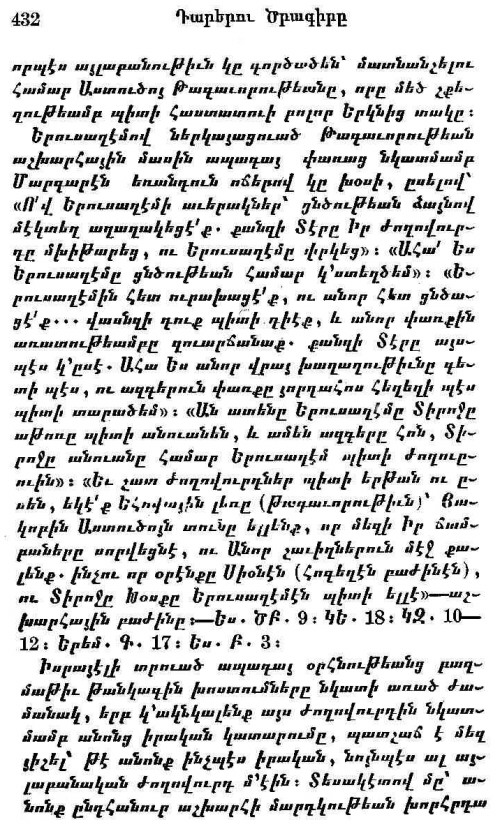 432 Դարերու Ծրագիրը
որպէս այլաբանութիւն կը գործածեն՝ մատնանշելու
համար Աստուծոյ Թագաւորութեանը, որը մեծ շքե-
ղութեամբ պիտի հաստատուի բոլոր երկնից տակը։
Երուսաղէմով ներկայացուած Թագաւորութեան
աշխարհային մասին ապագայ փառաց նկատմամբ
Մարգարէն եռանդուն ոճերով կը խօսի, ըսելով՝
«Ո՛վ Երուսաղէմի աւերակներ՝ ցնծութեան ձայնով
մէկտեղ աղաղակեցէ՛ք. քանզի Տէրը Իր ժողովուր-
դը մխիթարեց, ու Երուսաղէմը փրկեց»։ «Ահա՛ Ես
Երուսաղէմը ցնծութեան համար կ՚ստեղծեմ»։ «Ե-
րուսաղէմին հետ ուրախացէ՛ք, ու անոր հետ ցնծա-
ցէ՛ք... վասնզի դուք պիտի դիէք, և անոր փառքին
առատութեամբը զուարճանաք. քանզի Տէրը այս-
պէս կ՚ըսէ. Ահա Ես անոր վրայ խաղաղութիւնը գե-
տի պէս, ու ազգերուն փառքը յորդահոս հեղեղի պէս
պիտի տարածեմ»։ «Ան ատենը Երուսաղէմը Տիրոջը
աթոռը պիտի անուանեն, և ամեն ազգերը հոն, Տի-
րոջը անուանը համար Երուսաղէմ պիտի ժողուը-
ուին»։ «Եւ շատ ժողովուրդներ պիտի երթան ու ը-
սեն, եկէ՛ք Եհովային լեռը (Թագաւորութիւն)՝ Յա-
կոբին Աստուծոյն տունը ելլենք, որ մեզի Իր ճամ-
բաները սորվեցնէ, ու Անոր շաւիղներուն մէջ քա-
լենք. ինչու որ օրէնքը Սիօնէն (Հոգեղէն բաժինէն),
ու Տիրոջը Խօսքը Երուսաղէմէն պիտի ելլէ»—աշ-
խարհային բաժինը։—Ես. ԾԲ. 9։ ԿԵ. 18։ ԿԶ. 10—
12։ Երեմ. Գ. 17։ Ես. Բ. 3։
Իսրայէլի տրուած ապագայ օրհնութեանց բազ-
մաթիւ թանկագին խոստումները նկատի առած ժա-
մանակ, երբ կ՚ակնկալենք այս ժողովուրդին նկատ-
մամբ անոնց իրական կատարումը, պատշաճ է մեզ
յիշել՝ թէ անոնք ինչպէս իրական, նոյնպէս ալ այ-
լաբանական ժողովուրդ մ՚էին։ Տեսակէտով մը՝ ա-
նոնք ընդհանուր աշխարհի մարդկութեան խորհրդա